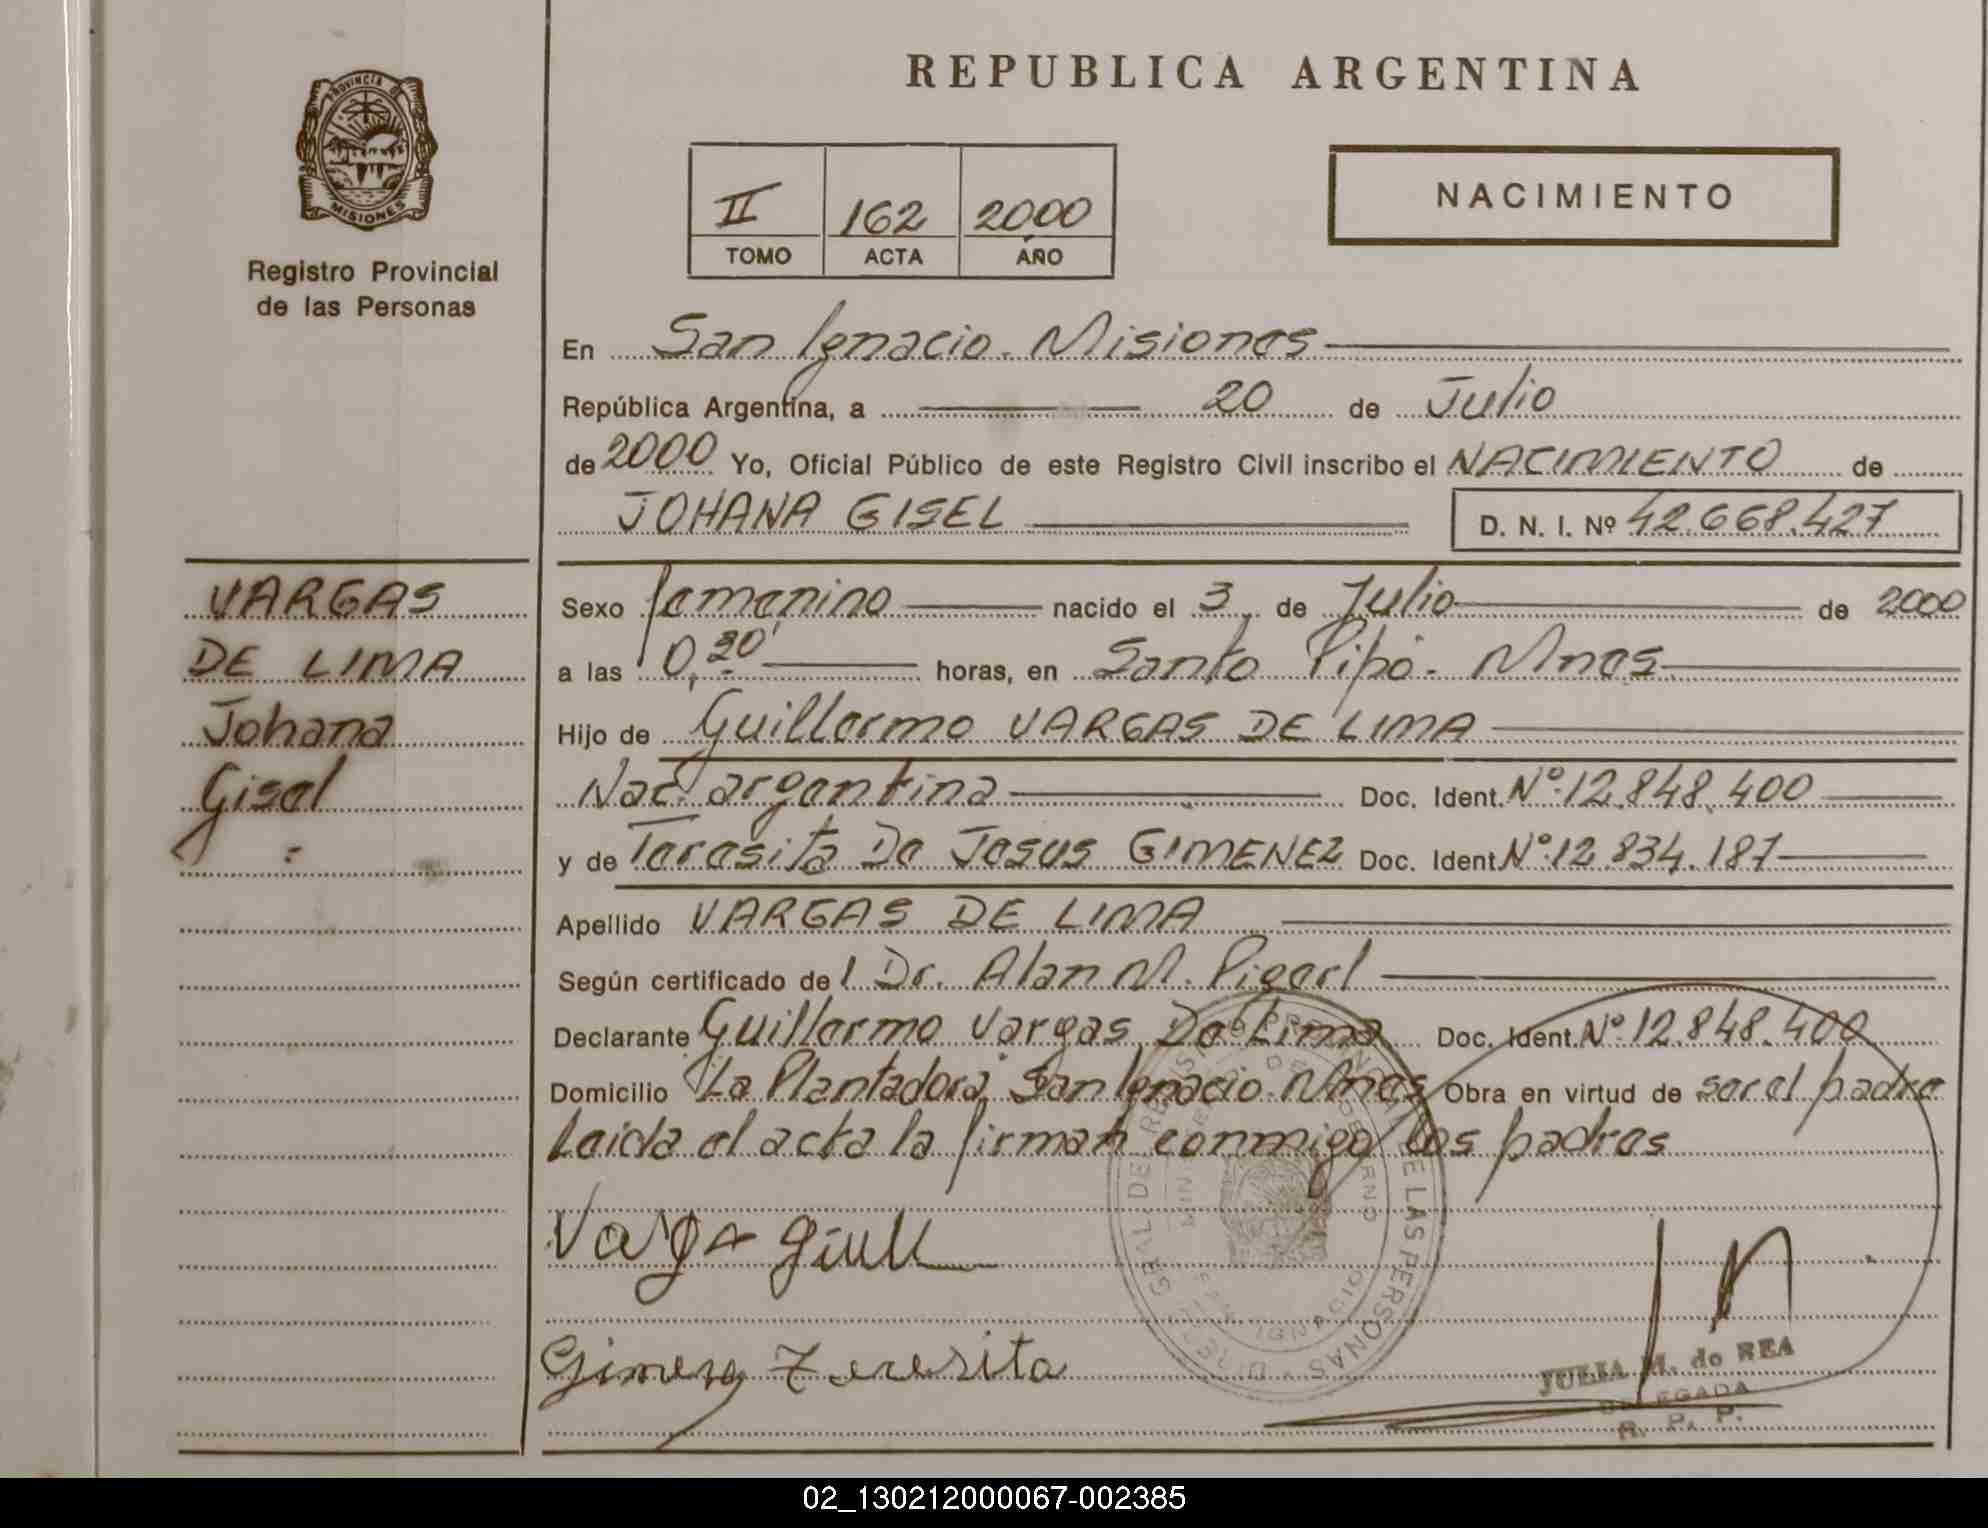 REPUBLICA ARGENTINA
PROVINCIA DE
MISIONES
Registro Provincial
de las Personas
II 162 2000
TOMO ACTA AÑO
NACIMIENTO
En San Ignacio - Misiones
República Argentina, a 20 de Julio
de 2000 Yo, Oficial Público de este Registro Civil inscribo el NACIMIENTO de
JOHANA GISEL D. N. I. Nº 42.668.427
VARGAS
DE LIMA
Johana
Gisel
Sexo femenino nacido el 3 de Julio de 2000
a las 0,20' horas, en Santo Pipó - Mnes
Hijo de Guillermo VARGAS DE LIMA
Nac. argentina Doc. Ident. Nº 12.848.400
y de Teresita De Jesus GIMENEZ Doc. Ident. Nº 12.834.187
Apellido VARGAS DE LIMA
Según certificado del Dr. Alan M.
Declarante Guillermo Vargas De Lima Doc. Ident. Nº 12.848.400
Domicilio "La Plantadora" San Ignacio - Mnes Obra en virtud de ser el padre
Leida el acta la firman conmigo los padres
Varga
Gimenez Teresita
SAN IGNACIO
JULIA M. de REA
DELEGADA
R. P. P.
02_130212000067-002385